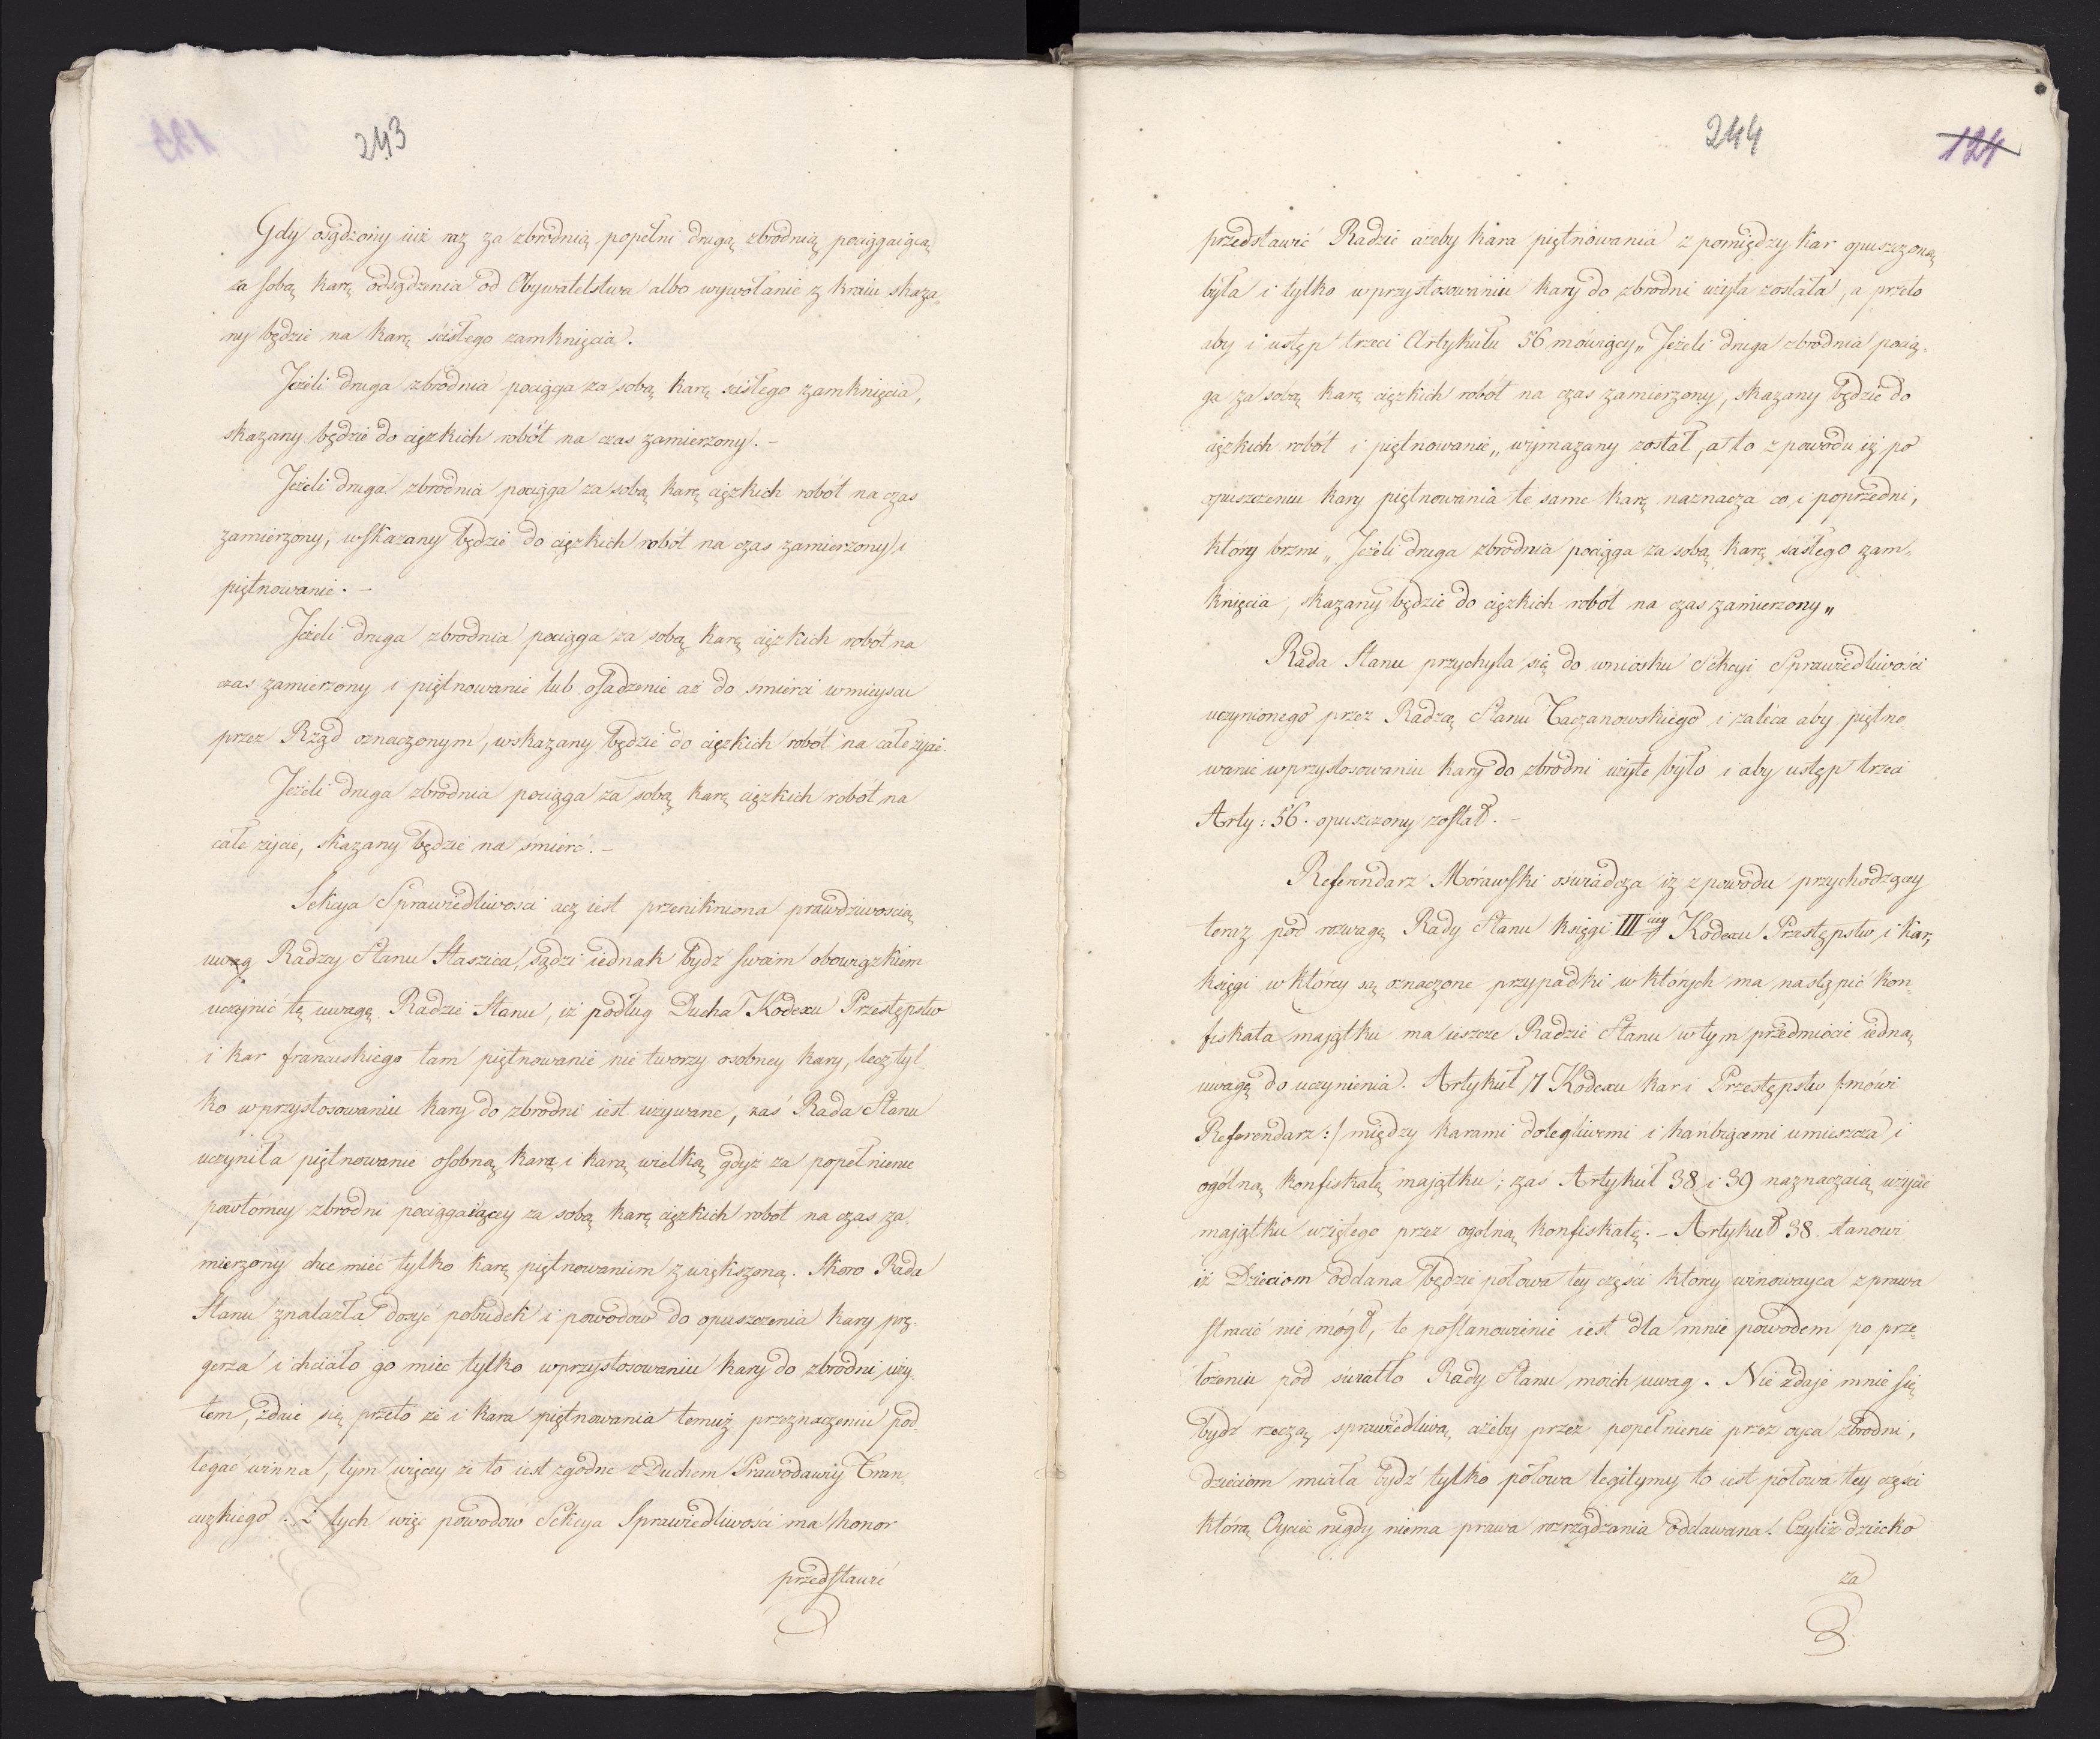 243
Gdy osądzony iuż raz za zbrodnią popełni drugą zbrodnią pociągaiącą
za sobą karę odsądzenia od Obywatelstwa albo wywołanie z kraiu skaza-
ny będzie na karę ścisłego zamknięcia.
Jeżeli druga zbrodnia pociąga za sobą karę ścisłego zamknięcia,
skazany będzie do ciężkich robót na czas zamierzony. -
Jeżeli druga zbrodnia pociąga za sobą karę ciężkich robót na czas
zamierzony, wskazany będzie do ciężkich robót na czas zamierzony i
piętnowanie. -
Jeżeli druga zbrodnia pociąga za sobą karę ciężkich robót na
czas zamierzony i piętnowanie lub osadzenie aż do śmierci w mieyscu
przez Rząd oznaczonym, wskazany będzie do ciężkich robót na całe życie.
Jeżeli druga zbrodnia pociąga za sobą karę ciężkich robót na
całe życie, skazany będzie na śmierć. -
Sekcya Sprawiedliwości acz iest przenikniona prawdziwością
uwag Radzcy Stanu Staszica, sądzi iednak bydź swoim obowiązkiem
uczynić tę uwagę Radzie Stanu, iż podług Ducha Kodexu Przestępstw
i kar francuskiego tam piętnowanie nie tworzy osobney kary, lecz tyl
ko w przystosowaniu kary do zbrodni iest używane, zaś Rada Stanu
uczyniła piętnowanie osobną karą i karą wielką gdyż za popełnienie
powtórney zbrodni pociągaiącey za sobą karę ciężkich robót na czas za
mierzony chce mieć tylko karę piętnowaniem zwiększoną. Skoro Rada
Stanu znalazła dosyć pobudek i powodów do opuszczenia kary prę-
gierza i chciało go mieć tylko w przystosowaniu kary do zbrodni uży
tem, zdaie się przeto że i kara piętnowania temuż przeznaczeniu pod
legać winna, tym więcey że to iest zgodne z Duchem Prawodawcy Fran
cuzkiego. Z tych więc powodów Sekcya Sprawiedliwości ma honor
przedstawić
244
124
przedstawić Radzie ażeby kara piętnowania z pomiędzy kar opuszczoną
była i tylko w przystosowaniu kary do zbrodni użyta została, a przeto
aby i ustęp trzeci Artykułu 56 mówiący „Jeżeli druga zbrodnia pocią-
ga za sobą karę ciężkich robót na czas zamierzony, skazany będzie do
ciężkich robót i piętnowanie„ wymazany został, a to z powodu iż po
opuszczeniu kary piętnowania te same karę naznacza co i poprzedni,
który brzmi „Jeżeli druga zbrodnia pociąga za sobą karę ścisłego zam-
knięcia, skazany będzie do ciężkich robót na czas zamierzony„
Rada Stanu przychyla się do wniosku Sekcyi Sprawiedliwości
uczynionego przez Radzcę Stanu Taczanowskiego i zaleca aby piętno
wanie w przystosowaniu kary do zbrodni użyte było i aby ustęp trzeci
Arty: 56. opuszczony został. -
Referendarz Morawski oświadcza iż z powodu przychodzącey
teraz pod rozwagę Rady Stanu księgi IIIciey Kodexu Przestępstw i kar,
księgi w którey są oznaczone przypadki w których ma nastąpić kon-
fiskata majątku ma ieszcze Radzie Stanu w tym przedmiocie iedną
uwagę do uczynienia. Artykuł 7 Kodexu kar i Przestępstw /:mówi
Referendarz:/ między karami dolegliwemi i hańbiącemi umieszcza i
ogólną konfiskatę majątku; zaś Artykuł 38 i 39 naznaczaią użycie
majątku wziętego przez ogólną konfiskatę. - Artykuł 38. stanowi
iż Dzieciom oddana będzie połowa tey części którey winowayca z prawa
stracić nie mógł, te postanowienie iest dla mnie powodem po prze
łożeniu pod światło Rady Stanu moich uwag. Nie zdaje mnie się
bydź rzeczą sprawiedliwą ażeby przez popełnienie przez oyca zbrodni,
dzieciom miała bydź tylko połowa legitymy to iest połowa tey części
którą Oyciec nigdy niema prawa rozrządzania oddawana. Czyliż dziecko
za